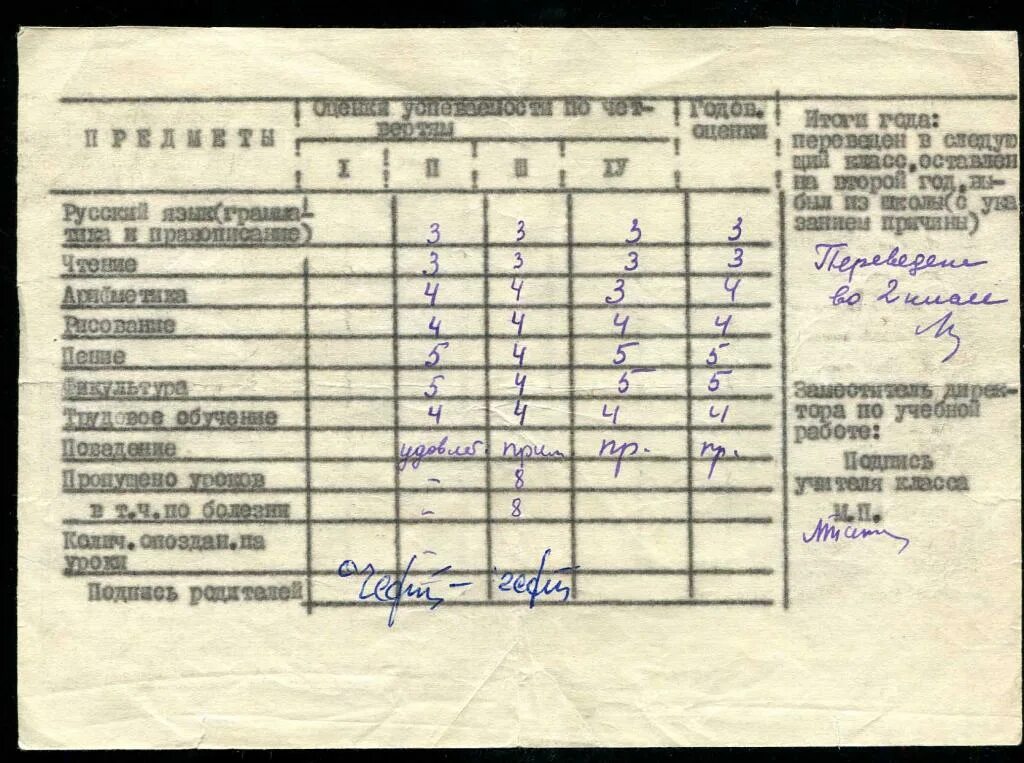 ПРЕДМЕТЫ Оценки успеваемости по чет- Годов.
вертям оценки
I II III IУ
Русский язык(грамма-
тика и правописание) 3 3 3 3
Чтение 3 3 3 3
Арифметика 4 4 3 4
Рисование 4 4 4 4
Пение 5 4 5 5
Физкультура 5 4 5 5
Трудовое обучение 4 4 4 4
Поведение удовлет. прим пр. пр.
Пропущено уроков - 8
в т.ч.по болезни - 8
Колич.опоздан.на -
уроки
Подпись родителей
Итоги года:
переведен в следую
щий класс,оставлен
на второй год,вы-
был из школы(с ука
занием причины)
Переведена
во 2 класс
Заместитель дирек-
тора по учебной
работе:
Подпись
учителя класса
М.П.